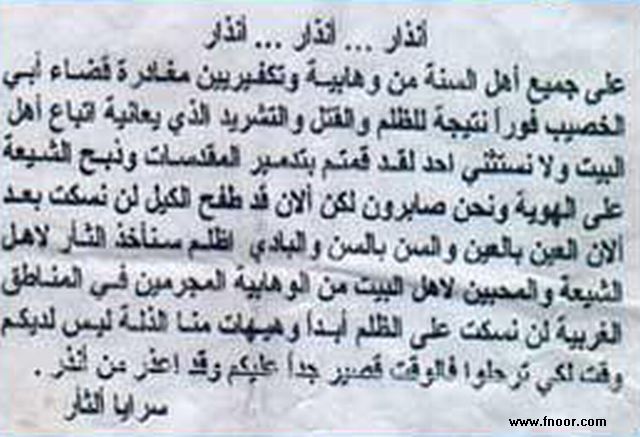 أنذار ... أنذار ... أنذار
على جميع أهل السنة من وهابية وتكفيريين مغادرة قضاء أبي
الخصيب فوراً نتيجة للظلم والقتل والتشريد الذي يعانية اتباع أهل
البيت ولا نستثني احد لقد قمتم بتدمير المقدسات وذبح الشيعة
على الهوية ونحن صابرون لكن ألان قد طفح الكيل لن نسكت بعد
ألان العين بالعين والسن بالسن والبادي اظلم سنأخذ الثأر لاهل
الشيعة والمحبين لاهل البيت من الوهابية المجرمين في المناطق
الغربية لن نسكت على الظلم أبداً وهيهات منا الذلة ليس لديكم
وقت لكي ترحلوا فالوقت قصير جداً عليكم وقد اعذر من أنذر .
سرايا ألثأر
www.fnoor.com